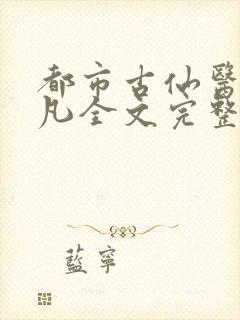 都市古仙醫
凡全文完整
藍寧